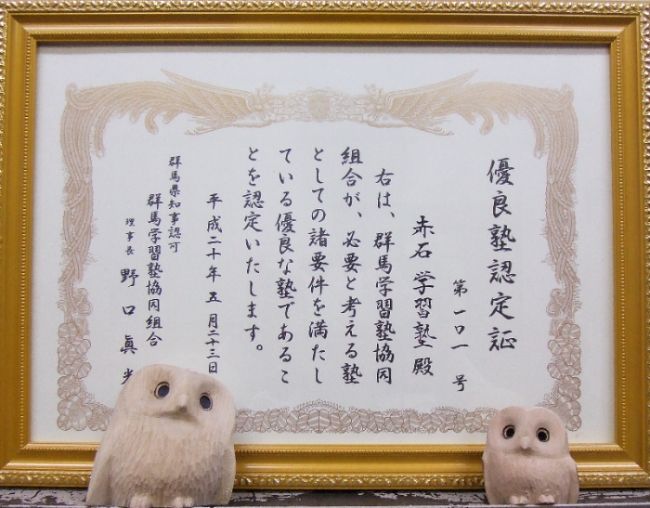 優良塾認定証
第一〇一号
赤石学習塾殿
右は、群馬学習塾協同
組合が、必要と考える塾
としての諸要件を満たし
ている優良な塾であるこ
とを認定いたします。
平成二十年五月二十三日
群馬県知事認可
群馬学習塾協同組合
理事長 野口眞